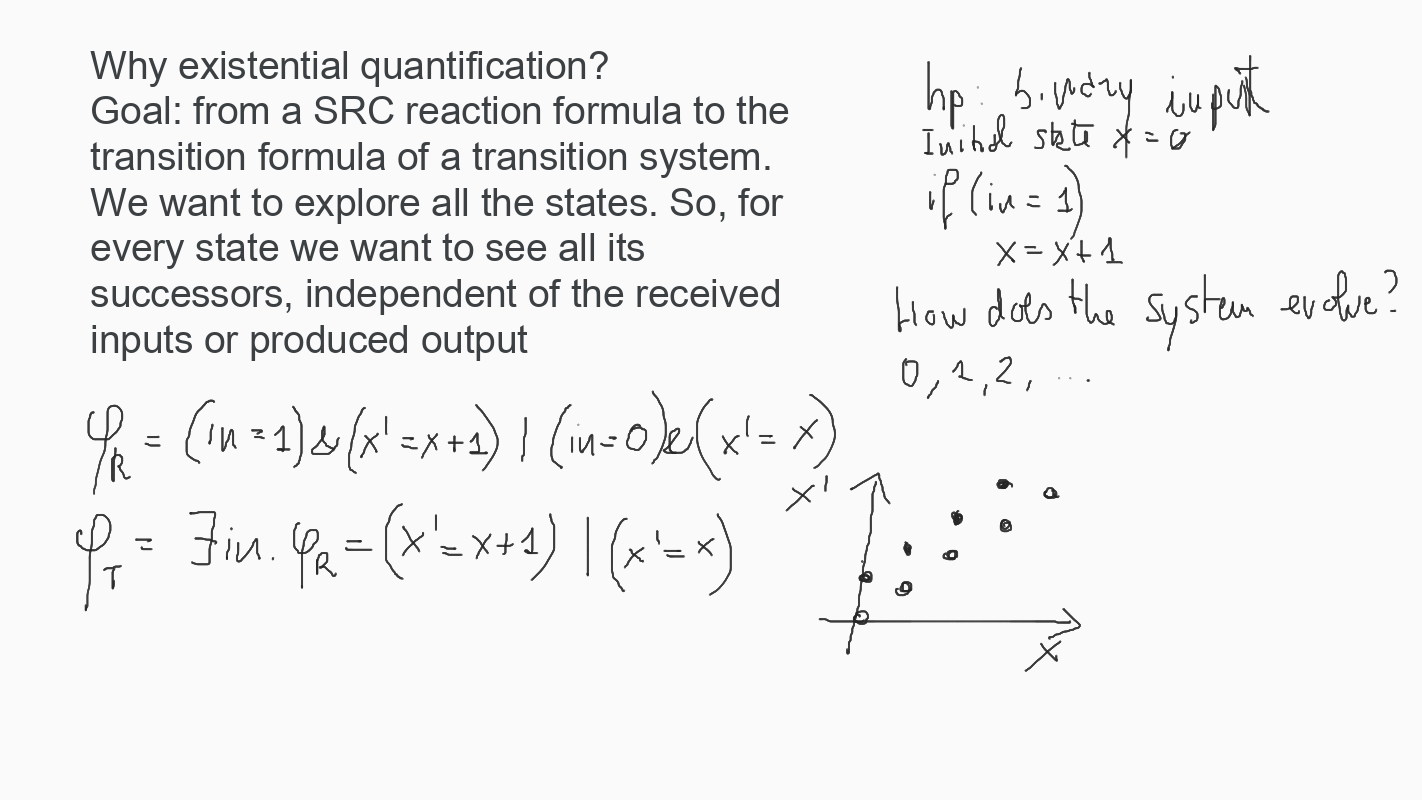 Why existential quantification?
Goal: from a SRC reaction formula to the
transition formula of a transition system.
We want to explore all the states. So, for
every state we want to see all its
successors, independent of the received
inputs or produced output
hp: binary input
Initial state x = 0
if (in = 1)
x = x + 1
How does the system evolve?
0, 1, 2, ...
φR = (in = 1) & (x' = x + 1) | (in = 0) & (x' = x)
φT = ∃ in. φR = (x' = x + 1) | (x' = x)
x'
x